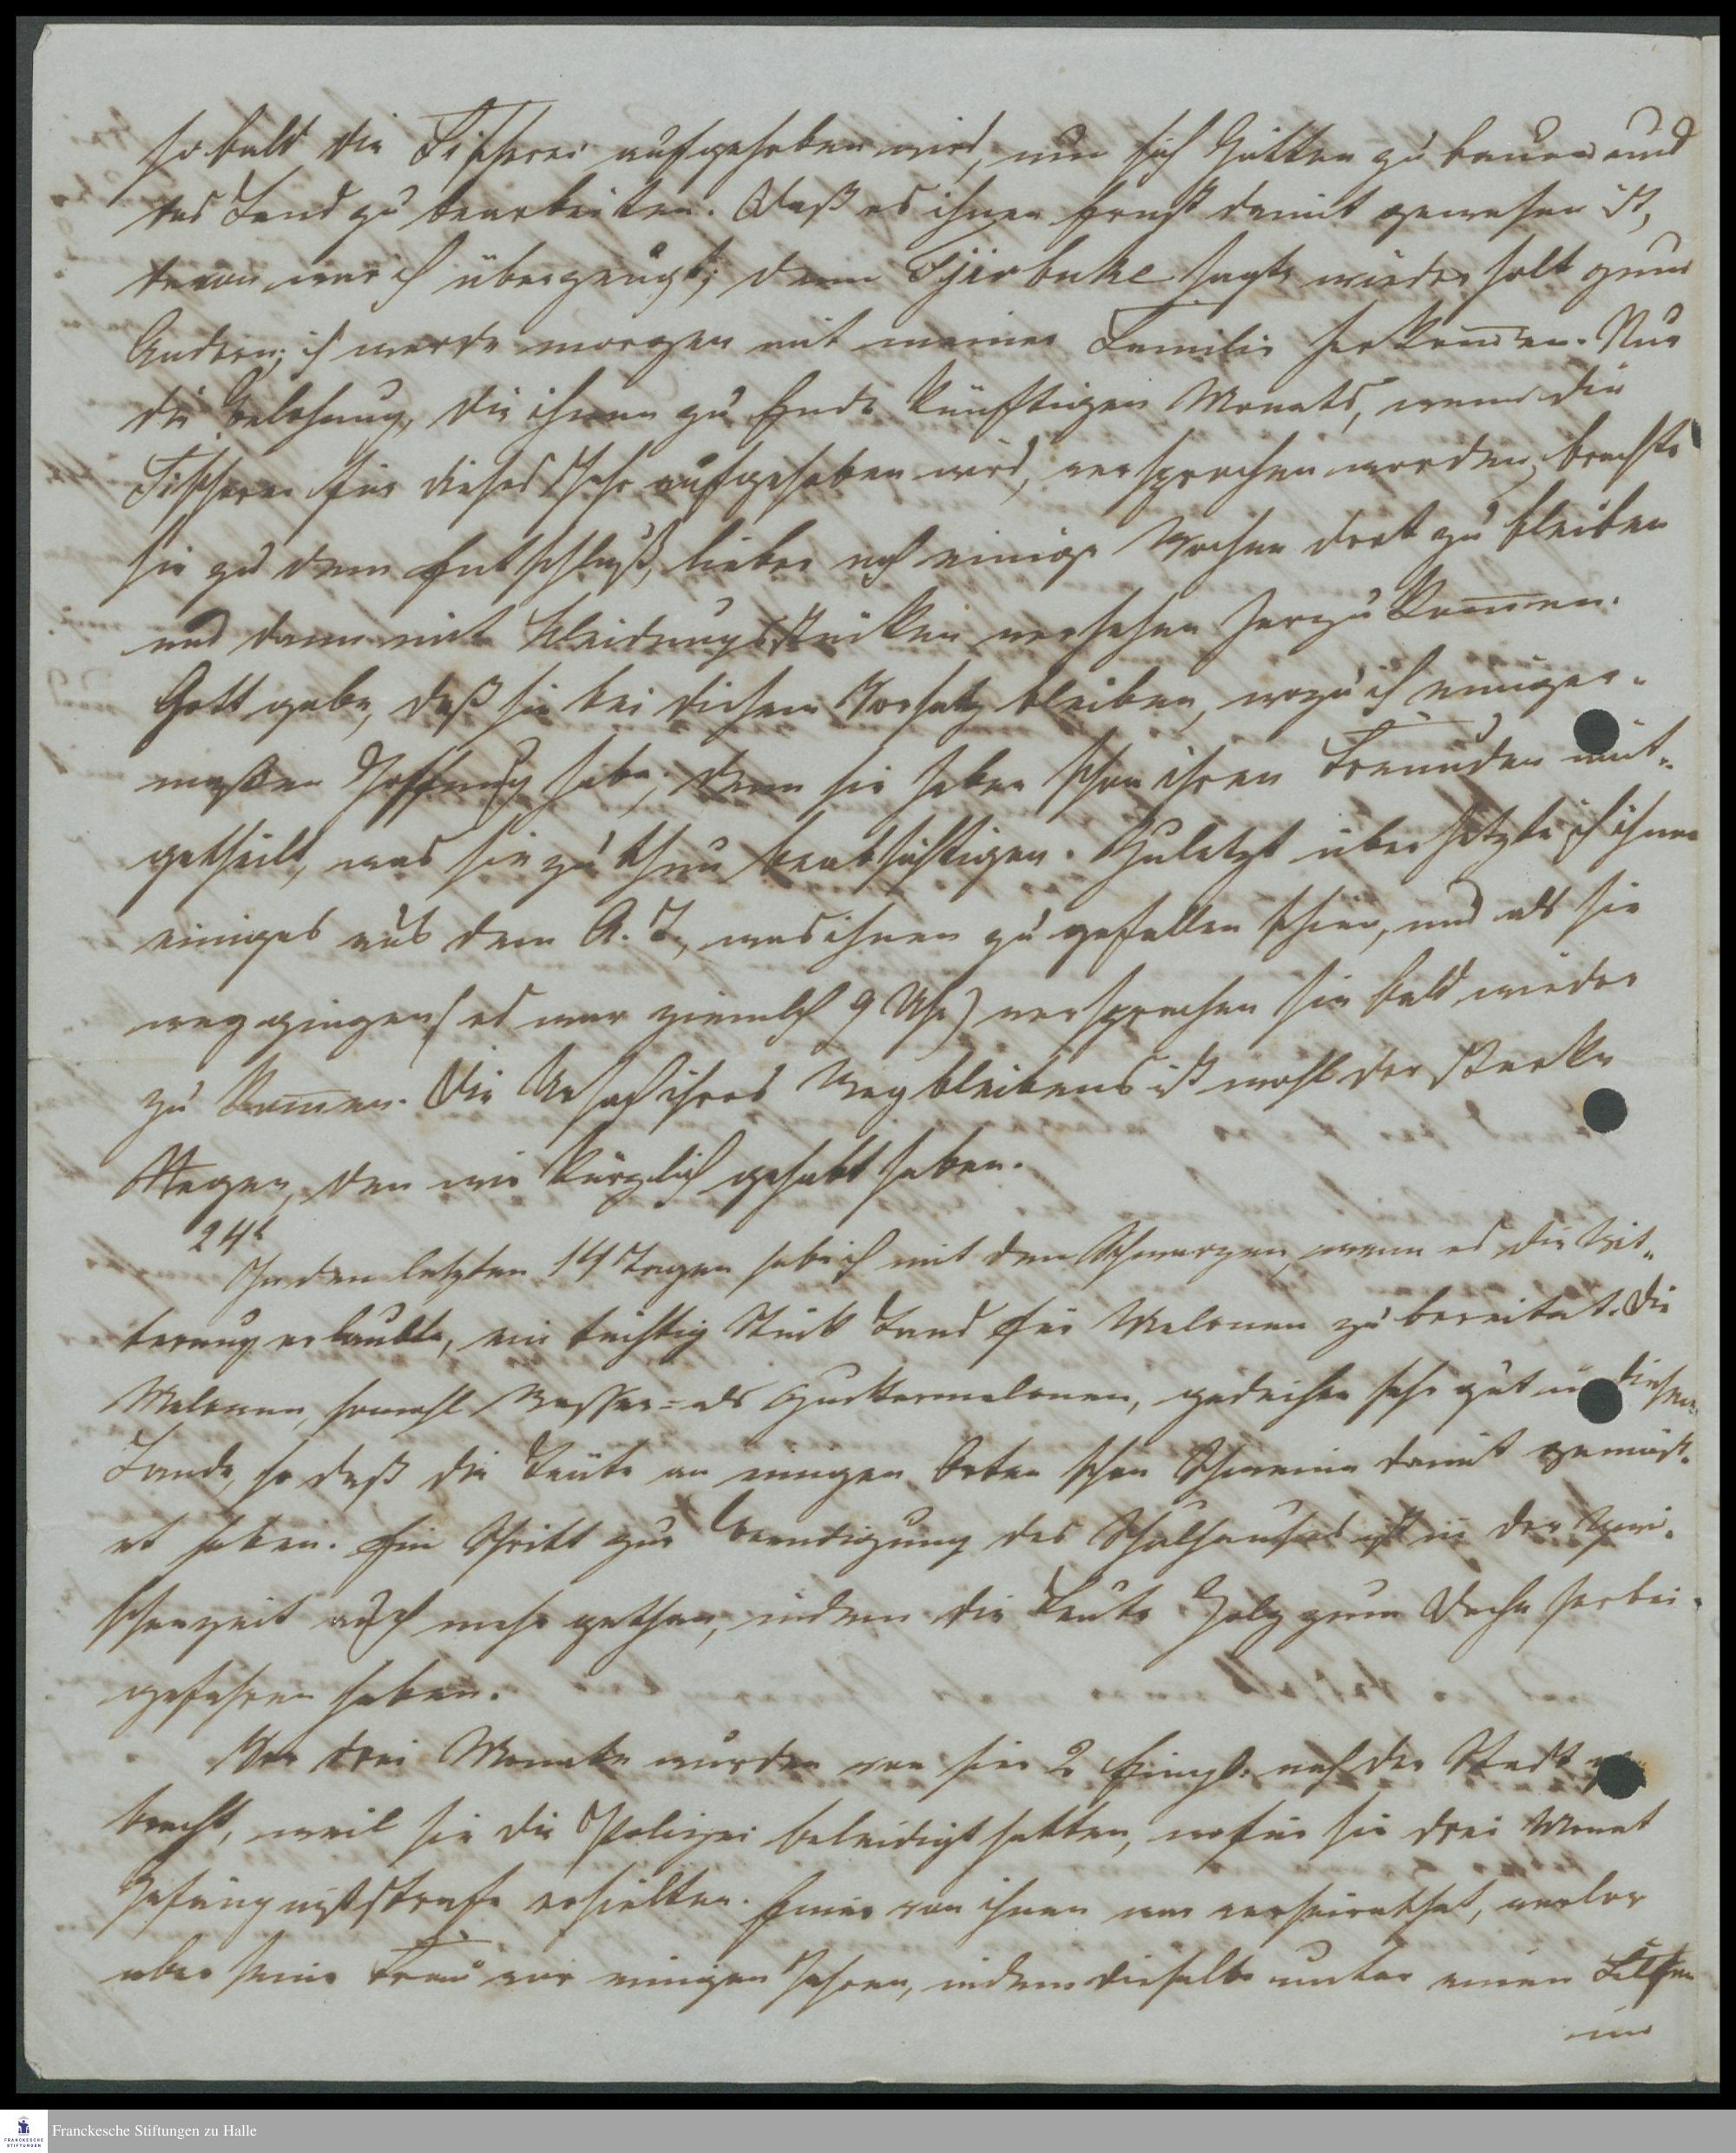 so bald die Fischerei aufgehoben wird, um sich Hütten zu bauen und
das Land zu bearbeiten. Daß es ihnen Ernst damit gewesen ist,
davon war ich überzeugt; denn Tjirbuke sagte wiederholt zum
Andern; ich werde morgen mit meiner Familie herkommen. Nur
die Belohnung, die ihnen zu Ende künftigen Monats, wenn die
Fischerei für dieses Jahr aufgehoben wird, versprochen worden, brachte
sie zu dem Entschluß, lieber noch einige Wochen dort zu bleiben
und dann mit Kleidungsstücken versehen herzukommen.
Gott gebe, daß sie bei diesem Vorsatz bleiben, wozu ich einiger-
maßen Hoffnung habe; denn sie haben schon ihren Freunden mit-
getheilt, was sie zu thun beabsichtigen. Zuletzt übersetzte ich ihnen
einiges aus dem A. T., was ihnen zu gefallen schien, und als sie
weggingen (es war ziemlich 9 Uhr) versprachen sie bald wieder
zu kommen. Die Ursach ihres Wegbleibens ist wohl der starke
Regen, den wir kürzlich gehabt haben.
24t
In den letzten 14 Tagen habe ich mit den Schwarzen, wenn es die Wit-
terung erlaubte, ein tüchtig Stück Land für Melonen zu bereitet. Die
Melonen, sowohl Wasser- als Zuckermelonen, gedeihen sehr gut in diesem
Lande, so daß die Leute an einigen Orten schon Schweine damit gemäst-
et haben. Ein Schritt zur Beendigung des Schulhauses ist in der Zwi-
schenzeit auch mehr gethan, indem die Leute Holz zum Dache herbei-
gefahren haben.
Vor drei Monate wurden von hier 2 Eingb: nach der Stadt ge-
bracht, weil sie die Polizei beleidigt hatten, wofür sie drei Monat
Gefängnißstrafe erhielten. Einer von ihnen war verheirathet, verlor
aber seine Frau vor einigen Jahren, indem dieselbe unter einen Felsen
Franckesche Stiftungen zu Halle